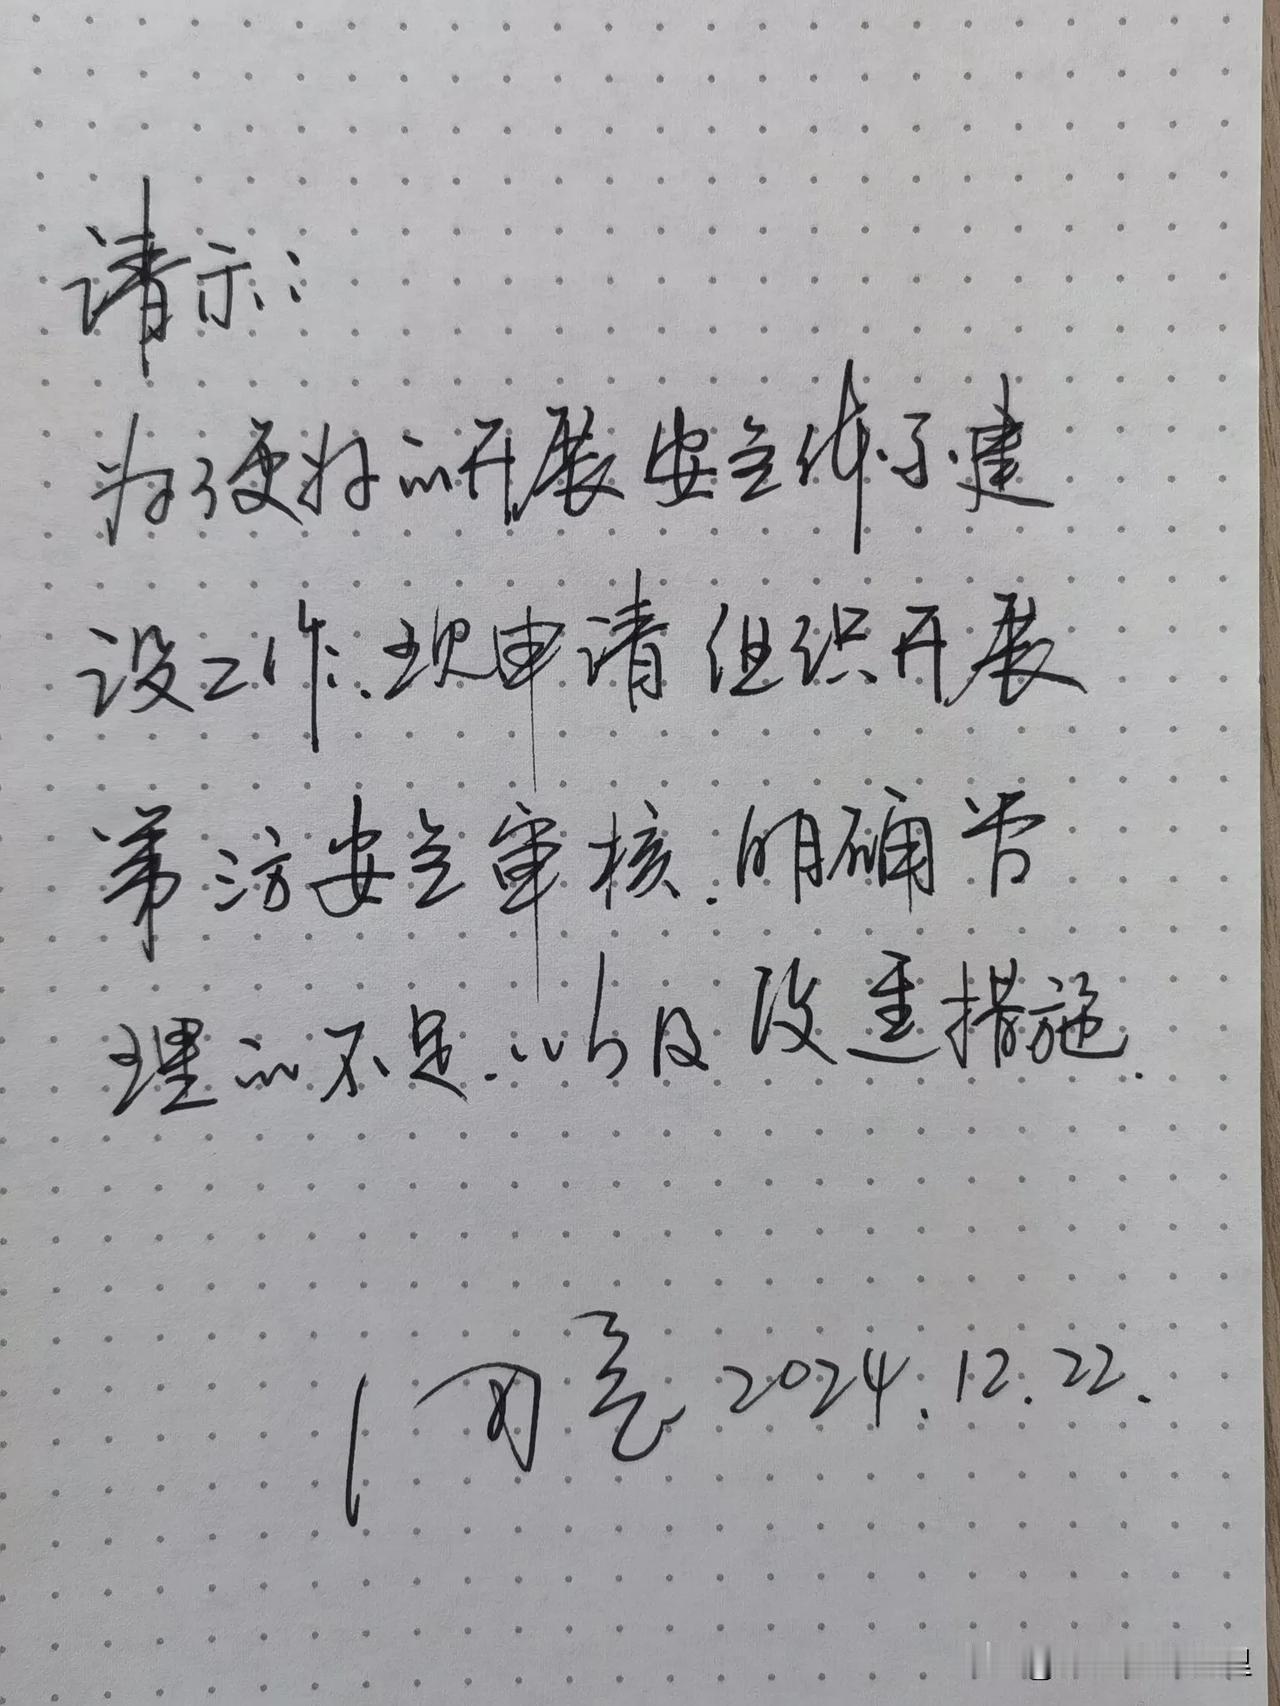 请示:
为了更好的开展安全体系建
设工作.现申请组织开展
第三方安全审核.明确管
理的不足.以及改进措施.
周亮 2024.12.22.